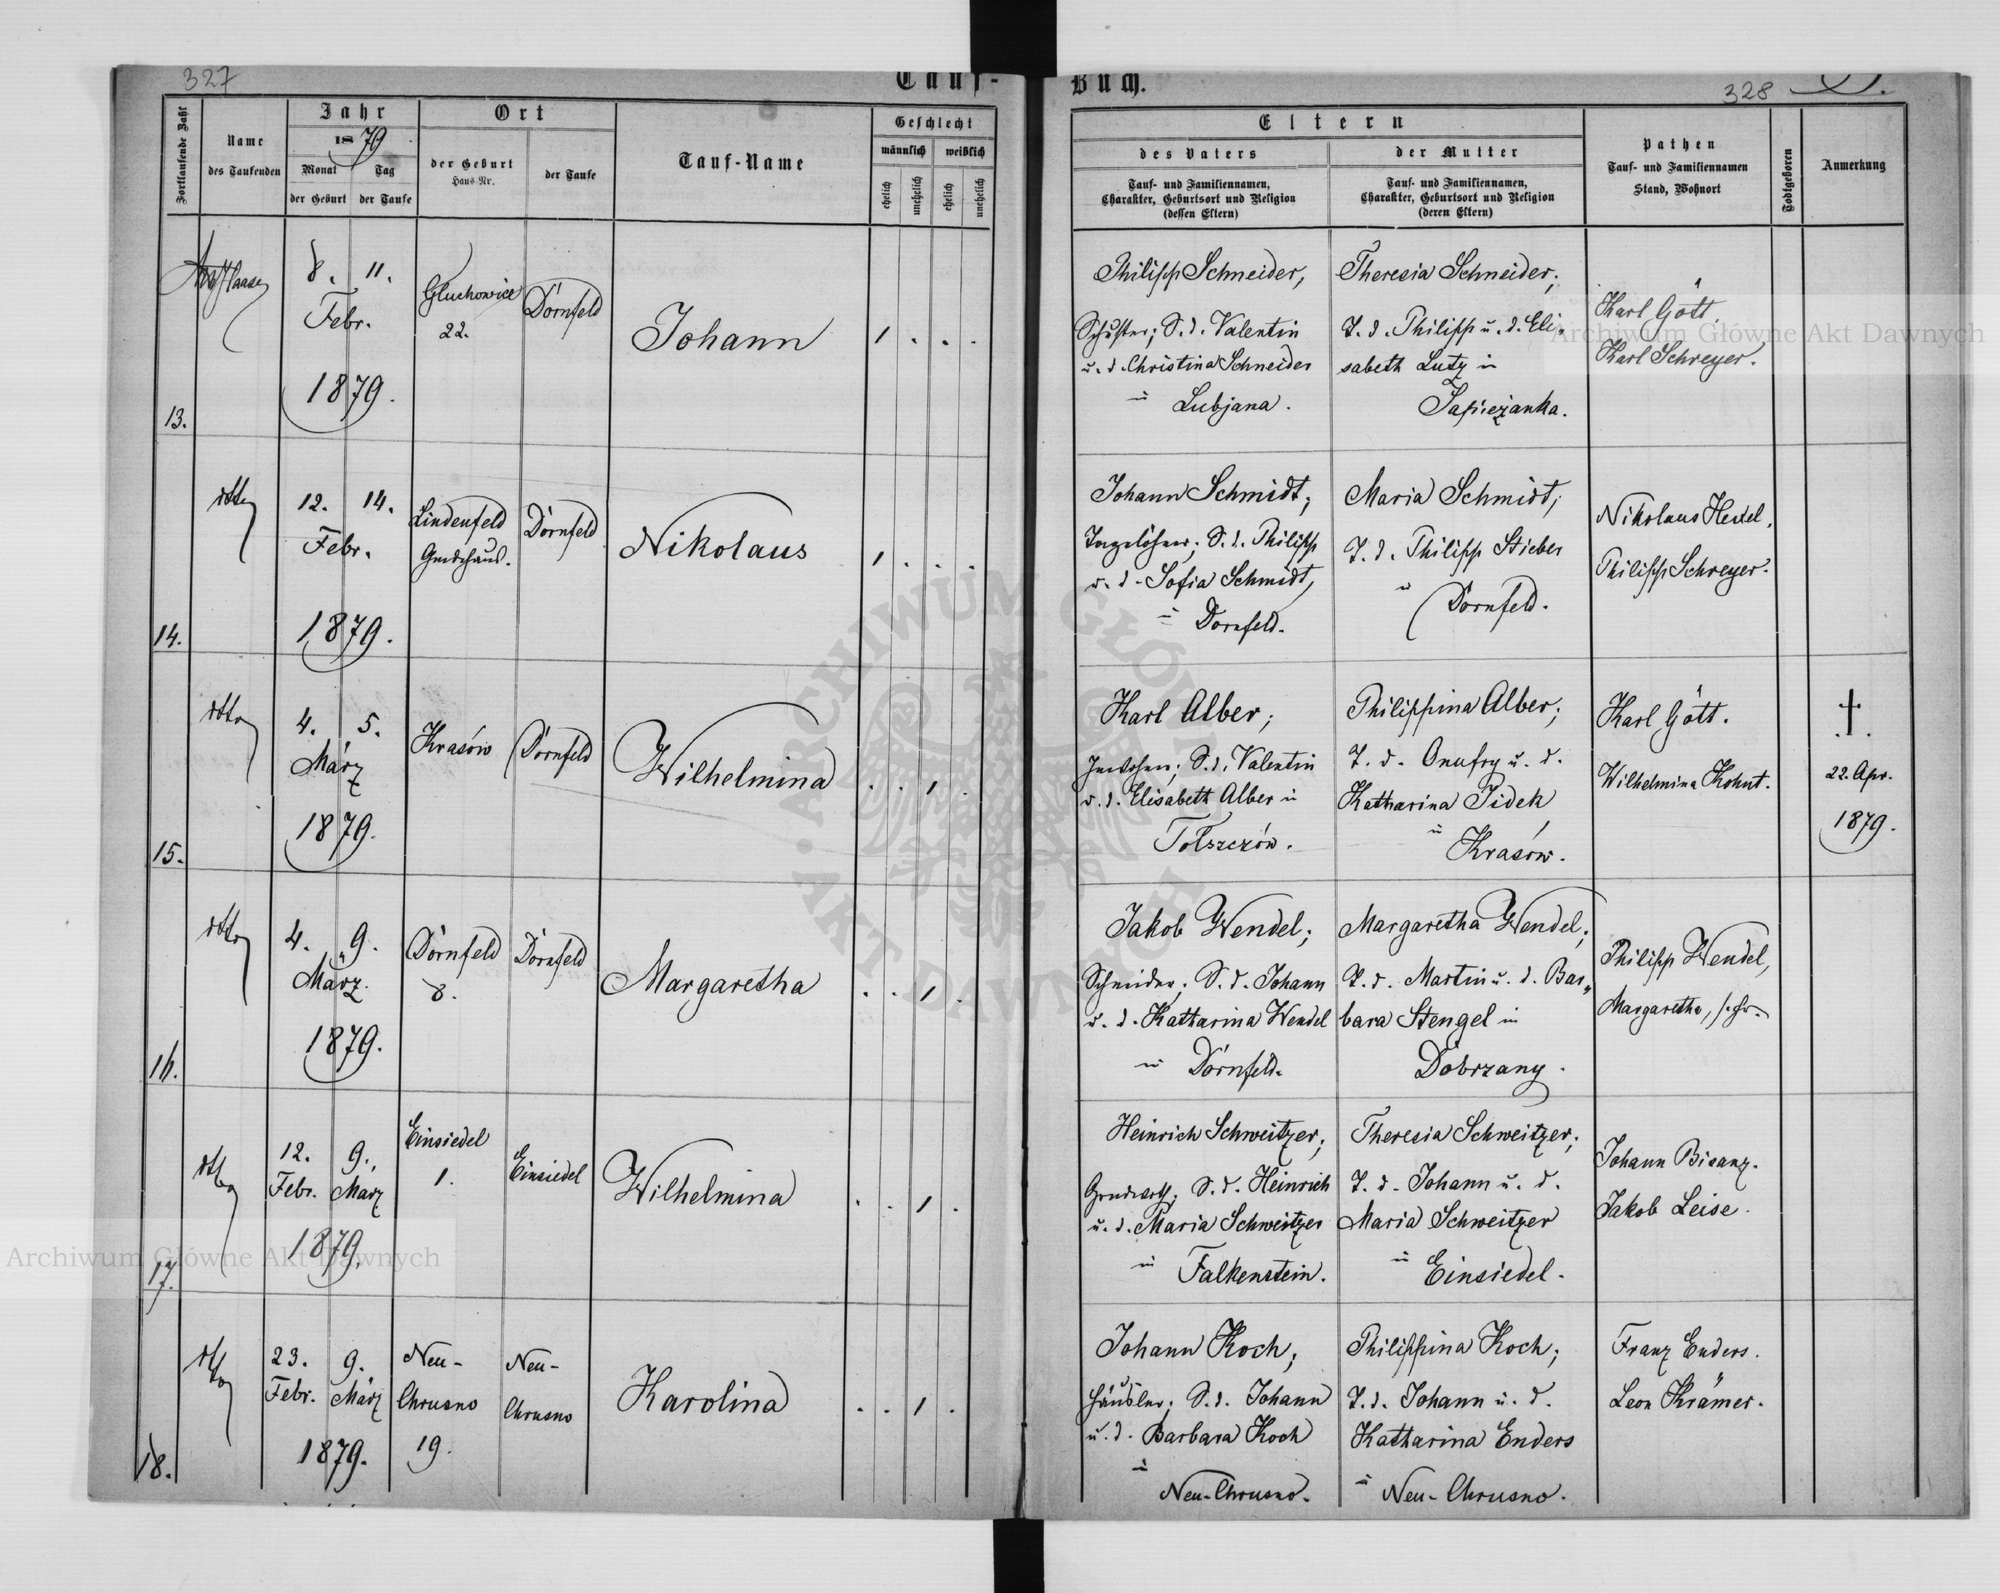 327
Tauf-
Buch.
328
Fortlaufende Zahl
Name
des Taufenden
Jahr
1879
Monat
Tag
der Geburt
der Taufe
Ort
der Geburt
Haus Nr.
der Taufe
Tauf-Name
Geschlecht
männlich
weiblich
ehelich
unehelich
ehelich
unehelich
Eltern
des Vaters
Tauf- und Familiennamen,
Charakter, Geburtsort und Religion
(dessen Eltern)
der Mutter
Tauf- und Familiennamen,
Charakter, Geburtsort und Religion
(deren Eltern)
Pathen
Tauf- und Familiennamen
Stand, Wohnort
Todtgeboren
Anmerkung
13.
8. 11.
Febr.
1879.
Gluchowice
22.
Dornfeld
Johann
1 . . .
Philipp Schneider,
Schuster; S. d. Valentin
u. d. Christina Schneider
in Lubjana.
Theresia Schneider;
T. d. Philipp u. d. Eli-
sabeth Lutz in
Sapieżanka.
Karl Gött.
Karl Schreyer.
14.
dtto
12. 14.
Febr.
1879.
Lindenfeld
Gmdehaus.
Dornfeld
Nikolaus
1 . . .
Johann Schmidt;
Tagelöhner; S. d. Philipp
u. d. Sofia Schmidt,
in Dornfeld.
Maria Schmidt;
T. d. Philipp Stieber
in Dornfeld.
Nikolaus Hexel,
Philipp Schreyer.
15.
dtto
4. 5.
März
1879.
Krasów
Dornfeld
Wilhelmina
. . 1 .
Karl Alber;
Inwohner; S. d. Valentin
u. d. Elisabeth Alber in
Tołszczów.
Philippina Alber;
T. d. Onufry u. d.
Katharina Sidek
in Krasów.
Karl Gött.
Wilhelmina Kohut.
†
22. Apr.
1879.
16.
dtto
4. 9.
März.
1879.
Dornfeld
8.
Dornfeld
Margaretha
. . 1 .
Jakob Wendel;
Schneider; S. d. Johann
u. d. Katharina Wendel
in Dornfeld.
Margaretha Wendel;
T. d. Martin u. d. Bar-
bara Stengel in
Dobrzany.
Philipp Wendel,
Margaretha, s. Fr.
17.
dtto
12. 9.
Febr. März
1879.
Einsiedel
1.
Einsiedel
Wilhelmina
. . 1 .
Heinrich Schweitzer;
Grundwrth; S. d. Heinrich
u. d. Maria Schweitzer
in Falkenstein.
Theresia Schweitzer;
T. d. Johann u. d.
Maria Schweitzer
in Einsiedel.
Johann Bisanz.
Jakob Leise.
18.
dtto
23. 9.
Febr. März
1879.
Neu-
Chrusno
19.
Neu-
Chrusno
Karolina
. . 1 .
Johann Koch;
Häusler; S. d. Johann
u. d. Barbara Koch
in
Neu-Chrusno.
Philippina Koch;
T. d. Johann u. d.
Katharina Enders
in Neu-Chrusno.
Franz Enders.
Leon Krämer.
Archiwum Główne Akt Dawnych
Archiwum Główne Akt Dawnych
ARCHIWUM GŁÓWNE AKT DAWNYCH